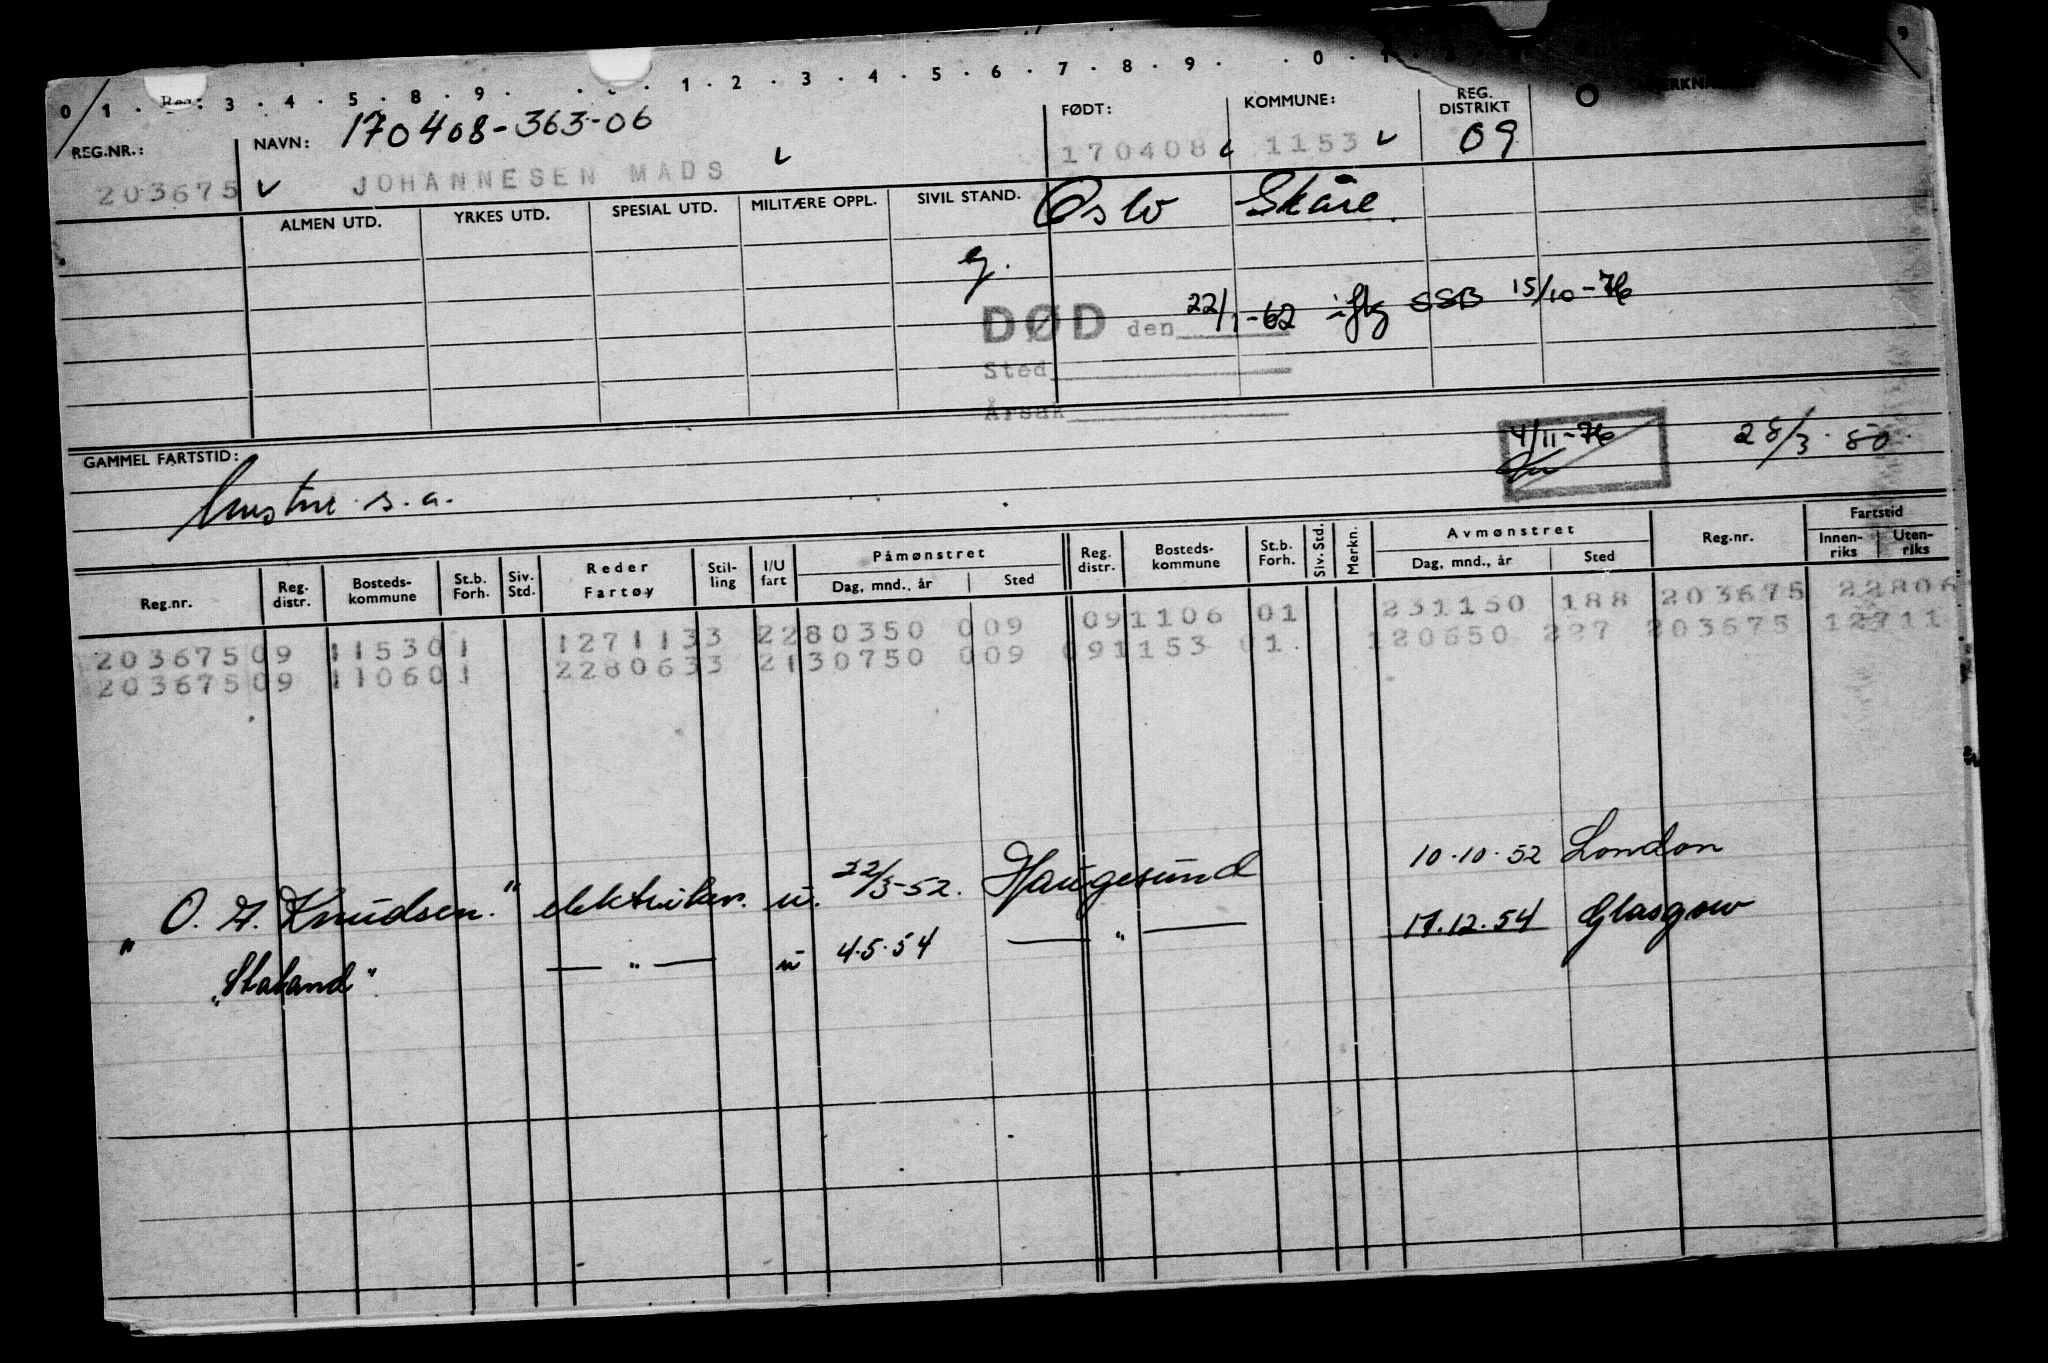 0 1 . Reg: 3 . 4 . 5 . 8 . 9 . . . . 1 . 2 . 3 . 4 . 5 . 6 . 7 . 8 . 9 . . 0 . 1 9
REG.NR.: NAVN: 170408-363-06 FØDT: KOMMUNE: REG. DISTRIKT 09
203675 JOHANNESEN MADS 170408 1153
ALMEN UTD. YRKES UTD. SPESIAL UTD. MILITÆRE OPPL. SIVIL STAND. Oslo Skåre.
g.
DØD den 22/1-62 iflg SSB 15/10-76
Sted
Årsak
GAMMEL FARTSTID: 4/11-76 28/3-80
s.a.
Reg.nr. Reg. distr. Bosteds-kommune St.b. Forh. Siv. Std. Reder Fartøy Stil-ling I/U fart Påmønstret Dag, mnd., år Sted Reg. distr. Bosteds-kommune St.b. Forh. Siv. Std. Merkn. Avmønstret Dag, mnd., år Sted Reg.nr. Fartstid Innen-riks Uten-riks
203675 09 1153 01 1271133 2280350 009 091106 01 231150 188 203675 22806
203675 09 1106 01 2280633 2130750 009 091153 01. 120650 227 203675 12711
"O. A. Knudsen." elektriker. u. 22/5-52. Haugesund 10.10.52 London
"Staland". — " — u 4.5.54 — " — 17.12.54 Glasgow